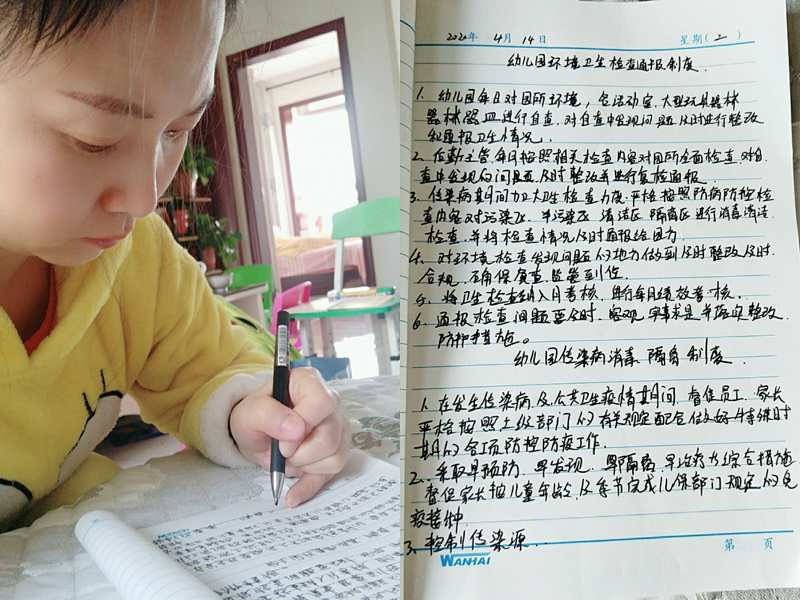 2020年 4月 14日 星期(二)
幼儿园环境卫生检查通报制度.
1. 幼儿园每日对园所环境,包活动室、大型玩具器林
器林器皿进行自查,对自查中发现问题及时进行整改
和通报卫生情况。
2. 后勤主管,每月按照相关检查内容对园所全面检查,对自
查中发现的问题及时整改并进行复检通报
3. 传染病期间加大卫生检查力度,严格按照防病防控检
查内容对污染区、半污染区、清洁区、隔离区进行消毒清洁
检查,并将检查情况及时通报给园方
4. 对环境检查发现问题的地方做到及时整改及时
合规,确保复查,监管到位.
5. 将卫生检查纳入月考核,进行每月绩效考核.
6. 通报检查问题要及时、客观、实事求是并落实整改
防护措施。
幼儿园传染病消毒隔离制度.
1. 在发生传染病及公共卫生疫情期间,督促员工、家长
严格按照上级部门的有关规定配合做好特殊时
期的各项防控防疫工作.
2. 采取早预防、早发现、早隔离、早治疗为综合措施
督促家长按儿童年龄及季节完成儿保部门规定的免
疫接种.
3. 控制传染源..
WANHAI 第 页